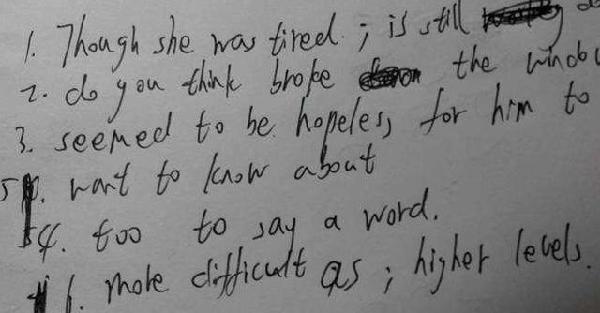 1. Though she was tired ; is still
2. do you think broke the window
3. seemed to be hopeless for him to
5. want to know about
4. too to say a word.
6. more difficult as ; higher levels.